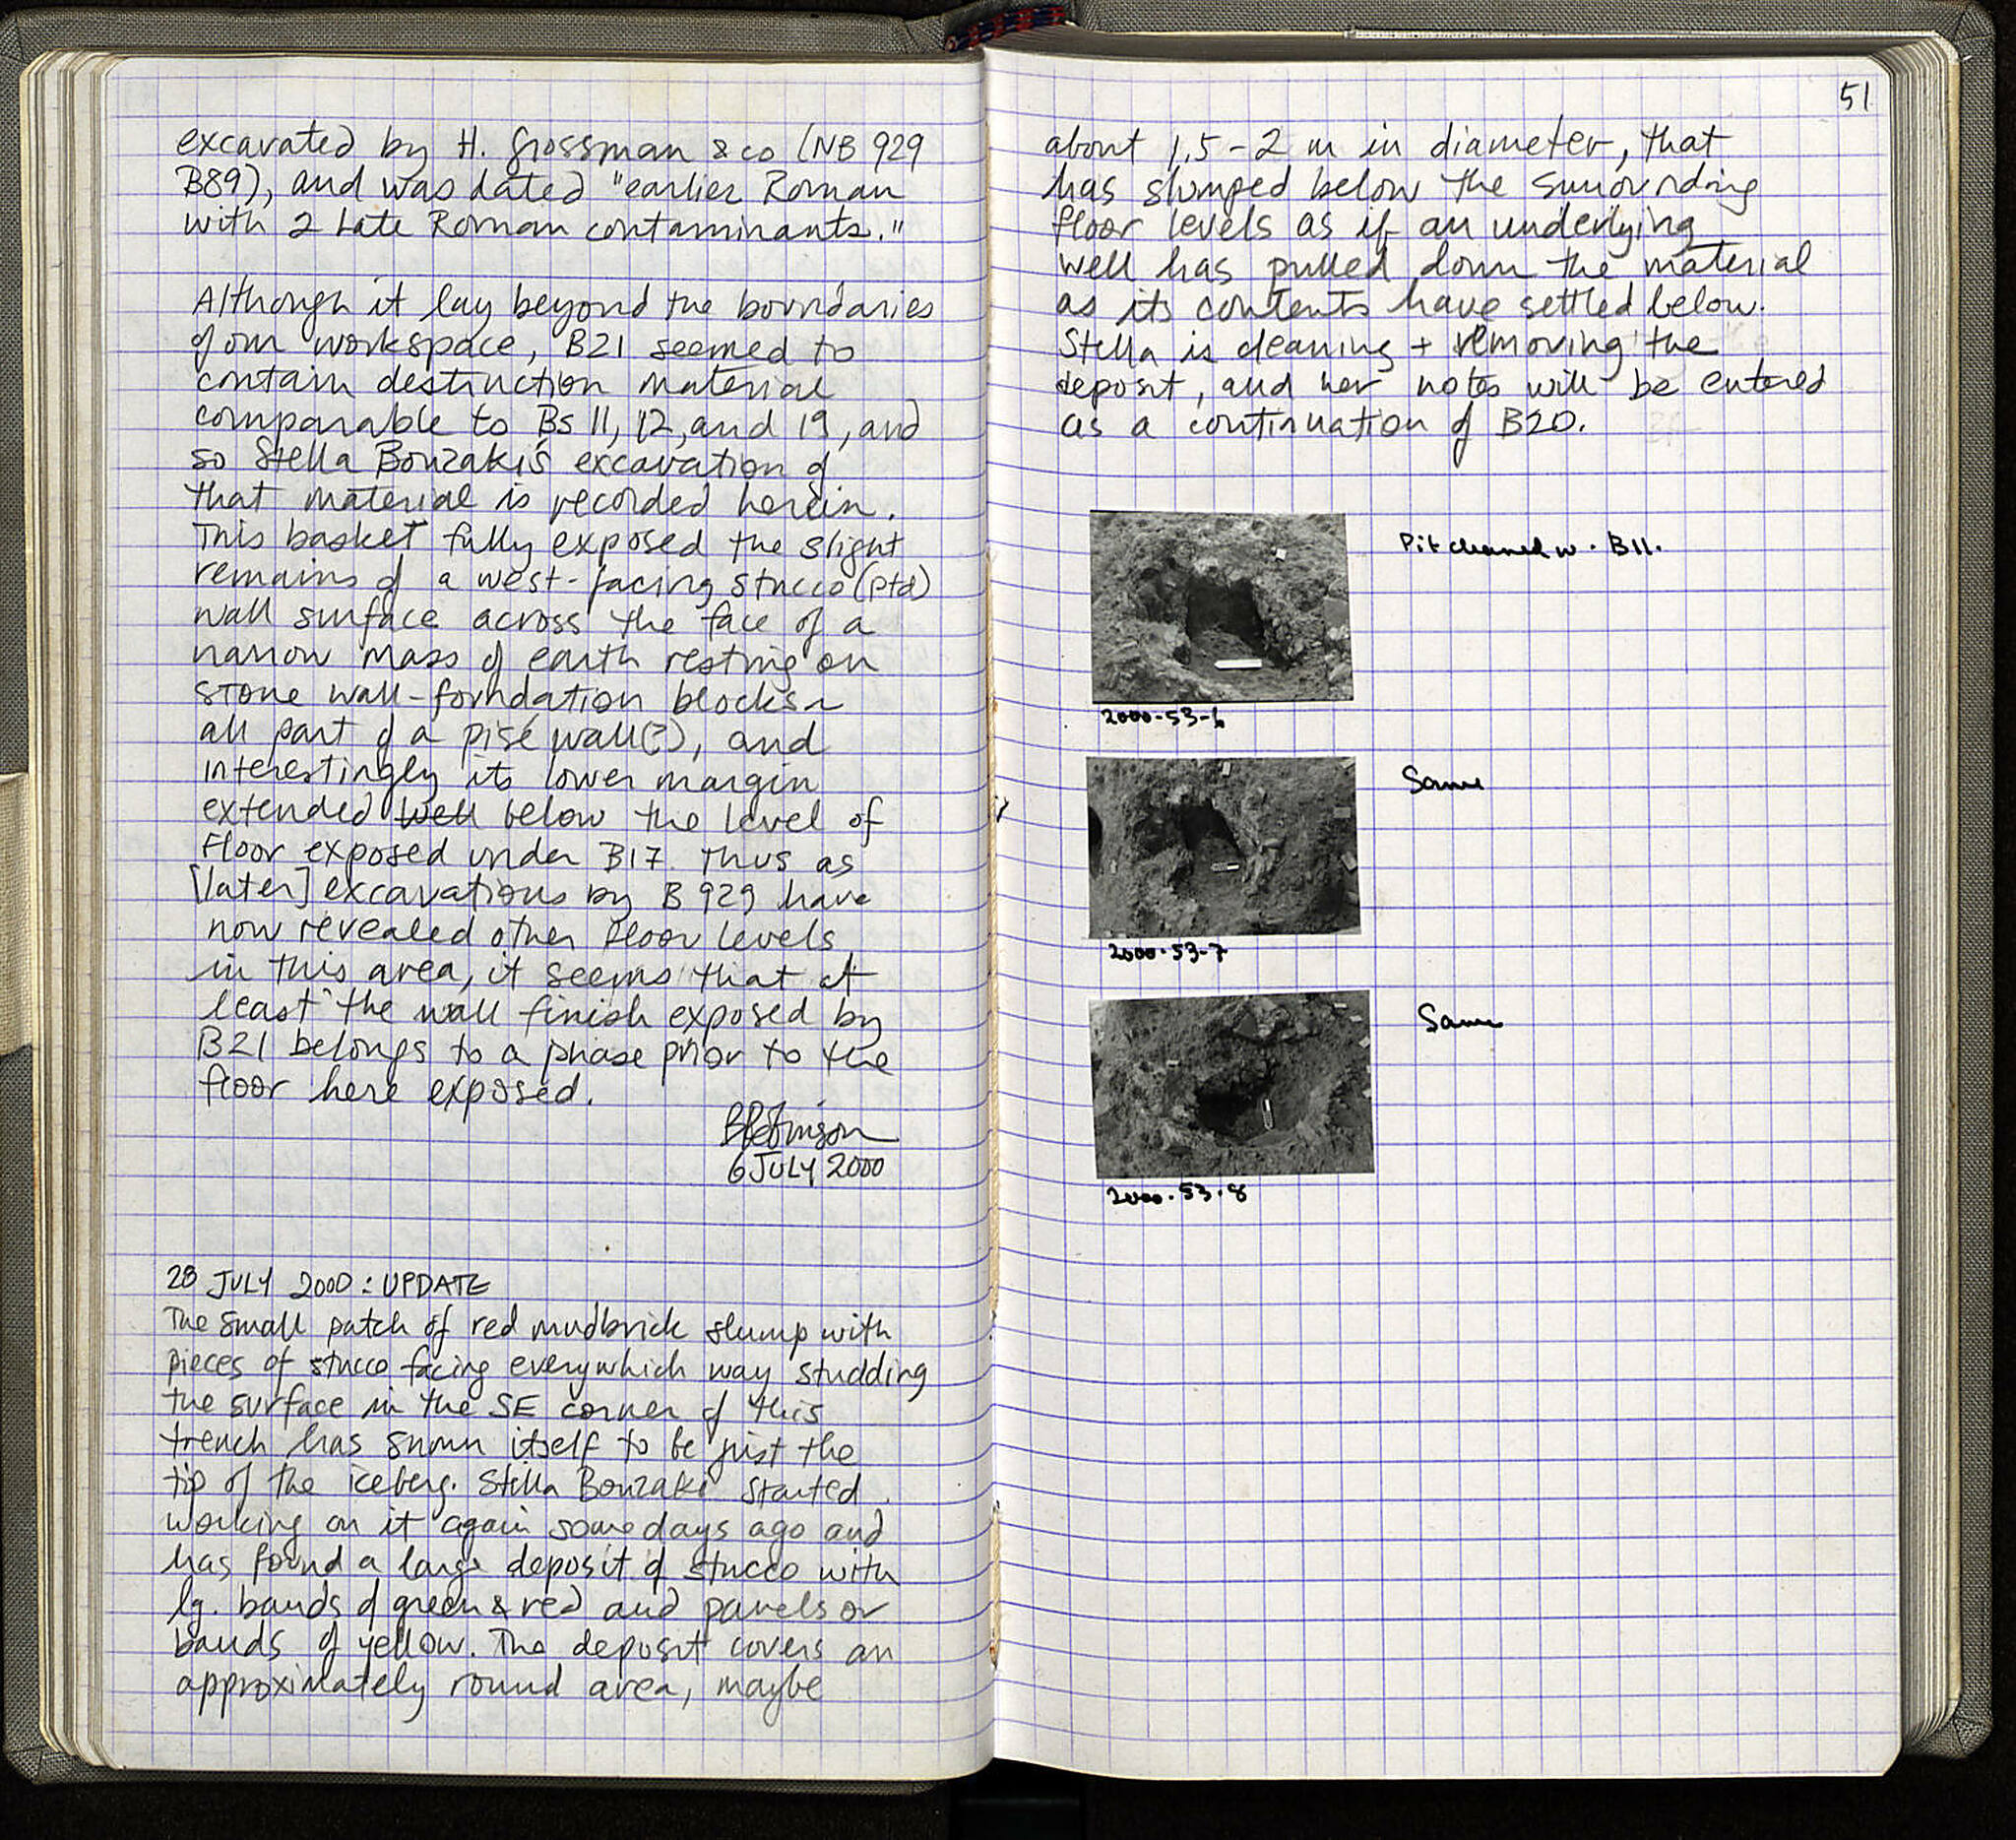 excavated by H. Grossman & co (NB 929
B89), and was dated "earlier Roman
with 2 Late Roman contaminants."
Although it lay beyond the boundaries
of our workspace, B21 seemed to
contain destruction material
comparable to Bs 11, 12, and 19, and
so Stella Bouzaki's excavation of
that material is recorded herein.
This basket fully exposed the slight
remains of a west-facing stucco (ptd)
wall surface across the face of a
narrow mass of earth resting on
stone wall-foundation blocks ~
all part of a pisé wall(?), and
interestingly its lower margin
extended well below the level of
Floor exposed under B17. Thus as
[later] excavations by B 929 have
now revealed other floor levels
in this area, it seems that at
least the wall finish exposed by
B21 belongs to a phase prior to the
floor here exposed.
BRobinson
6 JULY 2000
28 JULY 2000: UPDATE
The small patch of red mudbrick slump with
pieces of stucco facing everywhich way studding
the surface in the SE corner of this
trench has shown itself to be just the
tip of the iceberg. Stella Bouzaki started
working on it again some days ago and
has found a large deposit of stucco with
lg. bands of green & red and panels or
bands of yellow. The deposit covers an
approximately round area, maybe
51
about 1.5-2 m in diameter, that
has slumped below the surrounding
floor levels as if an underlying
well has pulled down the material
as its contents have settled below.
Stella is cleaning + removing the
deposit, and her notes will be entered
as a continuation of B20.
Pit cleaned w. B11.
2000-53-6
Same
2000-53-7
Same
2000.53.8